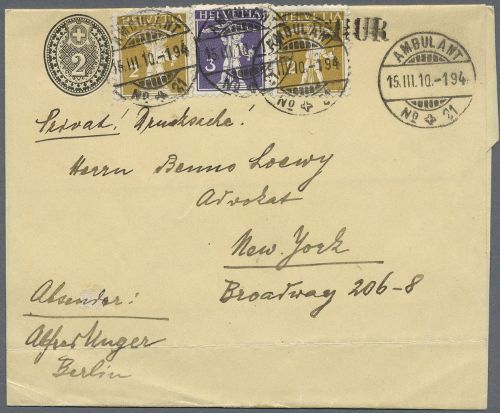 2
HELVETIA HELVETIA HELVETIA
2 3 2
UR
AMBULANT
15.III.10.-1 94
No 21
AMBULANT
15.III.10.-1 94
No 21
Privat! Drucksache!
Herrn Benno Loewy
Advokat
New York
Broadway 206-8
Absender:
Alfred Unger
Berlin